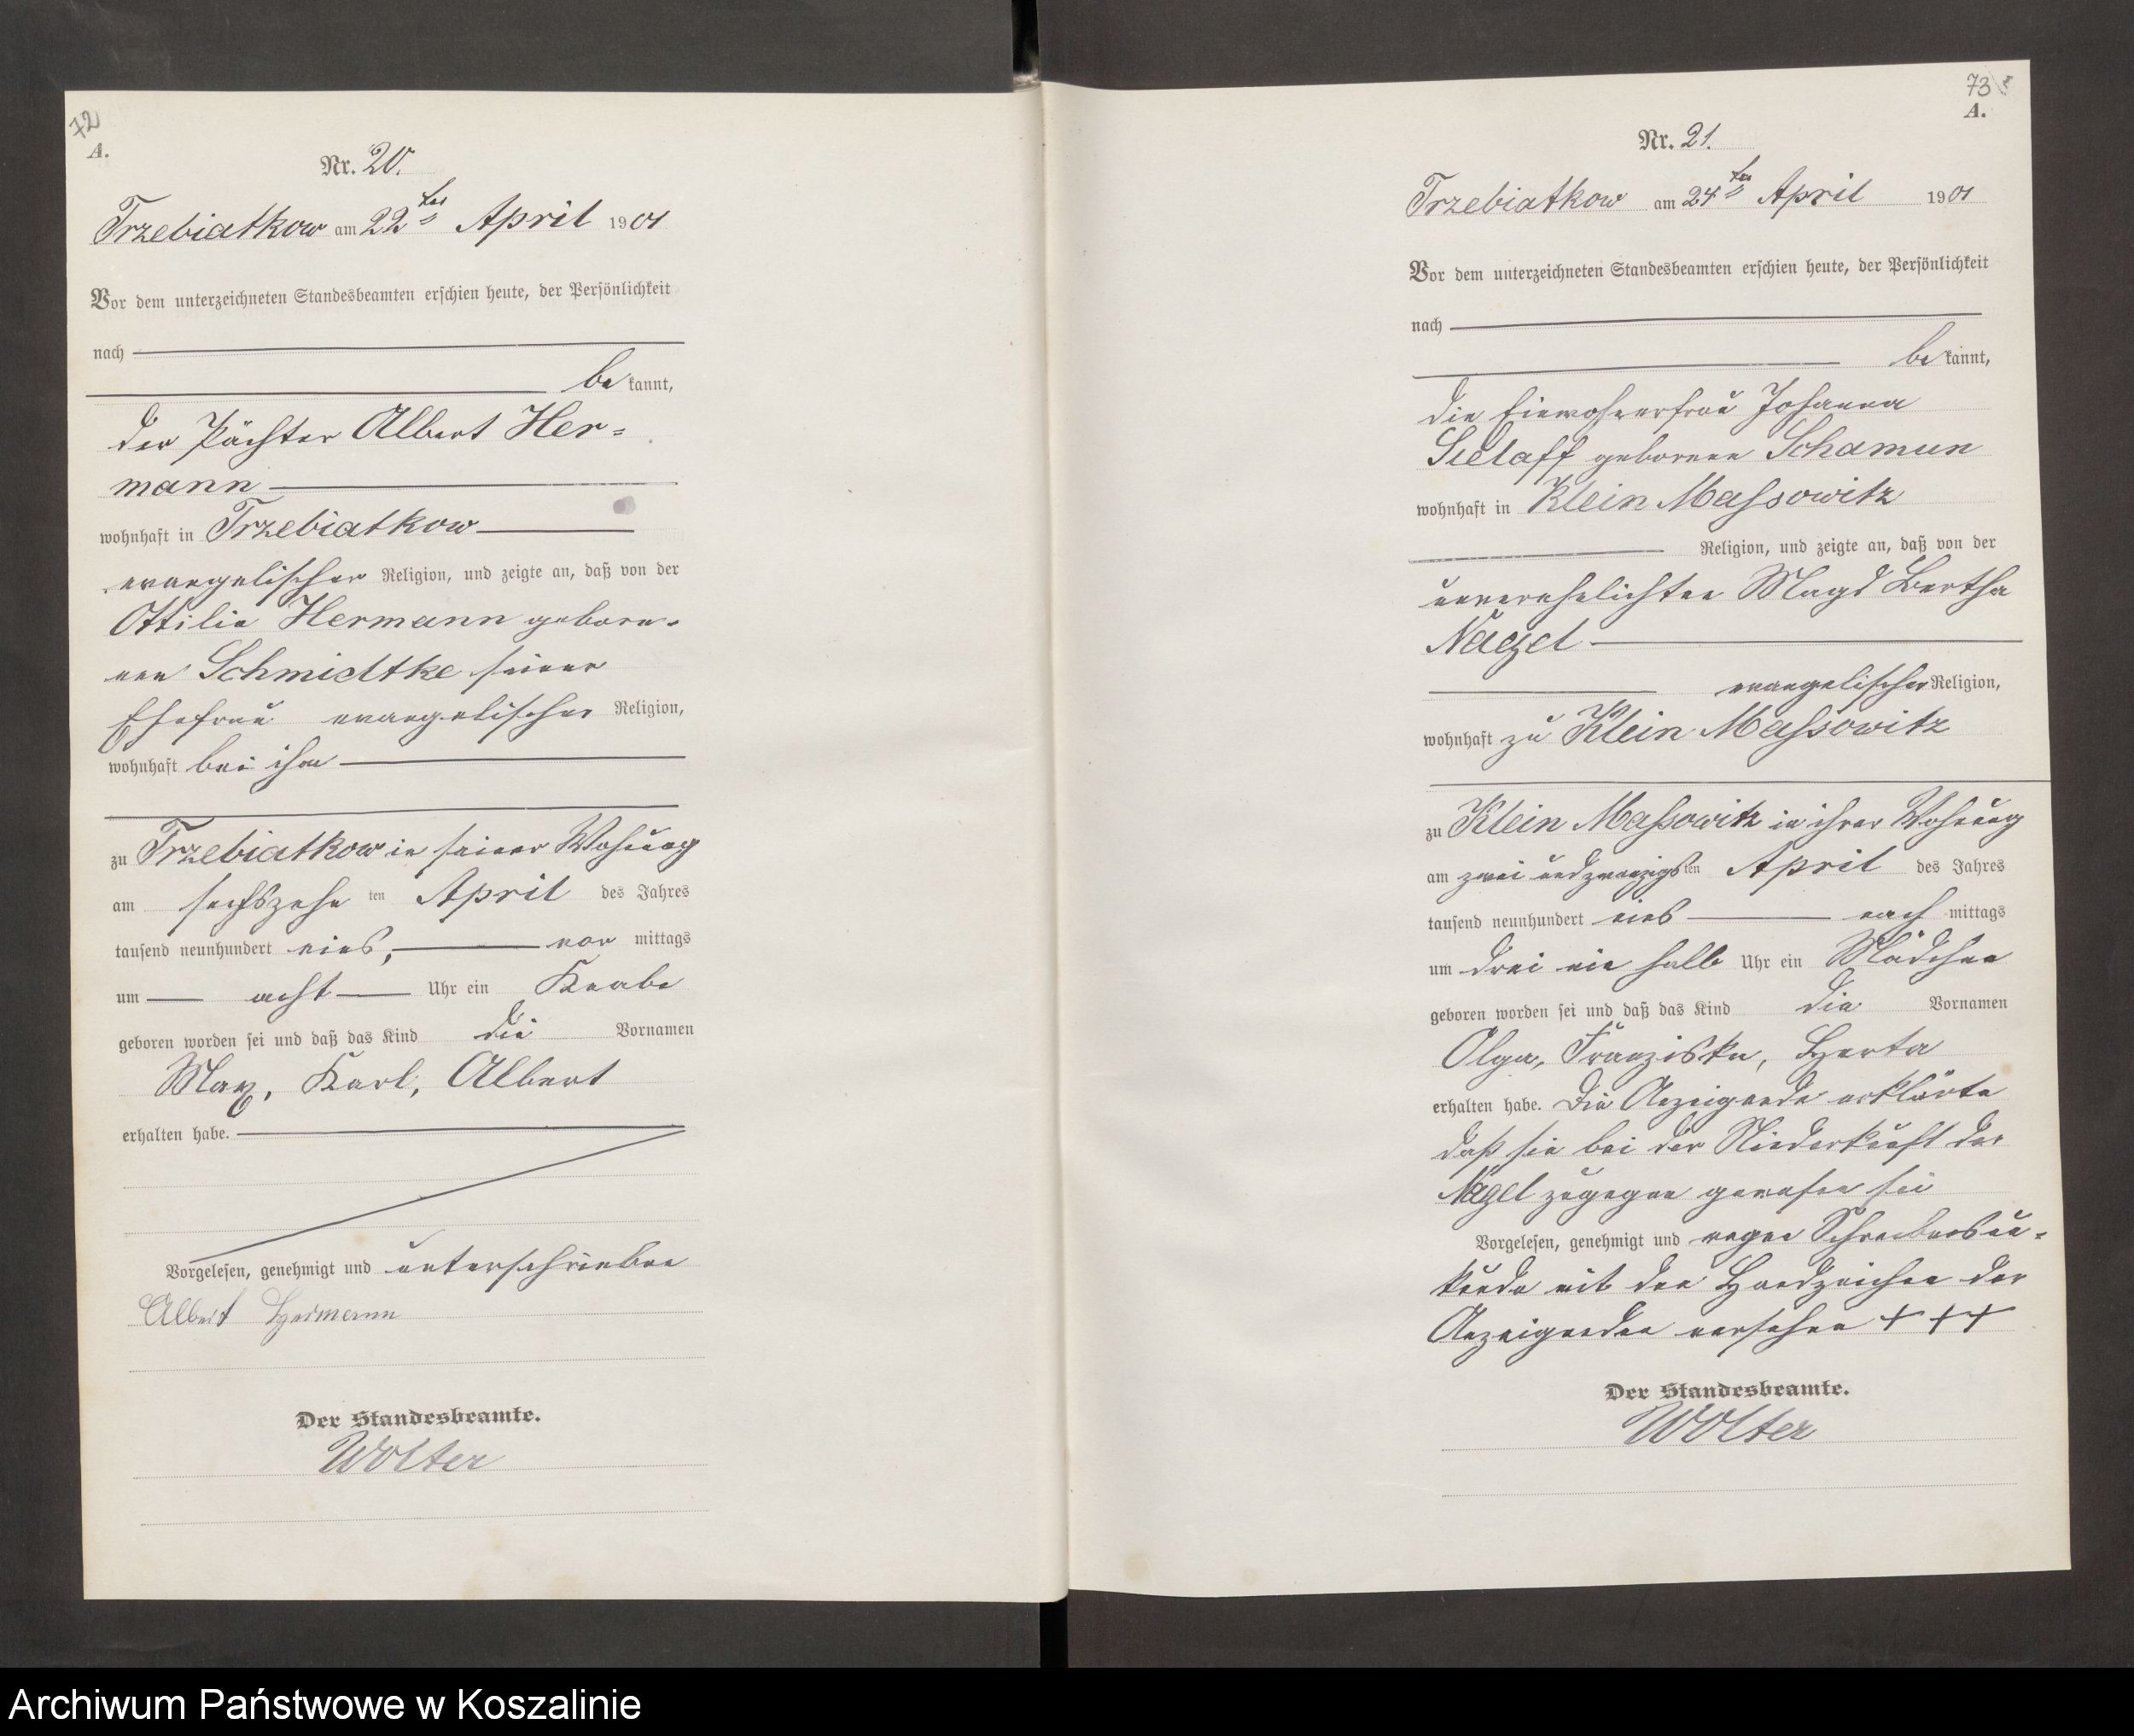 72
A.
Nr. 20.
Trzebiatkow am 22ten April 1901
Vor dem unterzeichneten Standesbeamten erschien heute, der Persönlichkeit
nach
be kannt,
der Pächter Albert Her-
mann
wohnhaft in Trzebiatkow
evangelischer Religion, und zeigte an, daß von der
Ottilie Hermann gebore-
nen Schmidtke seiner
Ehefrau evangelischer Religion,
wohnhaft bei ihm
zu Trzebiatkow in seiner Wohnung
am sechszehn ten April des Jahres
tausend neunhundert eins, vor mittags
um acht Uhr ein Knabe
geboren worden sei und daß das Kind die Vornamen
Max, Karl, Albert
erhalten habe.
Vorgelesen, genehmigt und unterschrieben
Albert Hermann
Der Standesbeamte.
Wolter
73
A.
Nr. 21.
Trzebiatkow am 24ten April 1901
Vor dem unterzeichneten Standesbeamten erschien heute, der Persönlichkeit
nach
be kannt,
die Einwohnerfrau Johanna
Selaff geborene Schamun
wohnhaft in Klein Massowitz
Religion, und zeigte an, daß von der
unverehelichten Magd Bertha
Nagel
evangelischer Religion,
wohnhaft zu Klein Massowitz
zu Klein Massowitz in ihrer Wohnung
am zwei und zwanzigsten April des Jahres
tausend neunhundert eins nach mittags
um drei ein halb Uhr ein Mädchen
geboren worden sei und daß das Kind die Vornamen
Olga, Franziska, Herta
erhalten habe. Die Anzeigende erklärte
daß sie bei der Niederkunft der
Nagel zugegen gewesen sei
Vorgelesen, genehmigt und wegen Schreibensun-
kunde mit den Handzeichen der
Anzeigenden versehen + + +
Der Standesbeamte.
Wolter
Archiwum Państwowe w Koszalinie